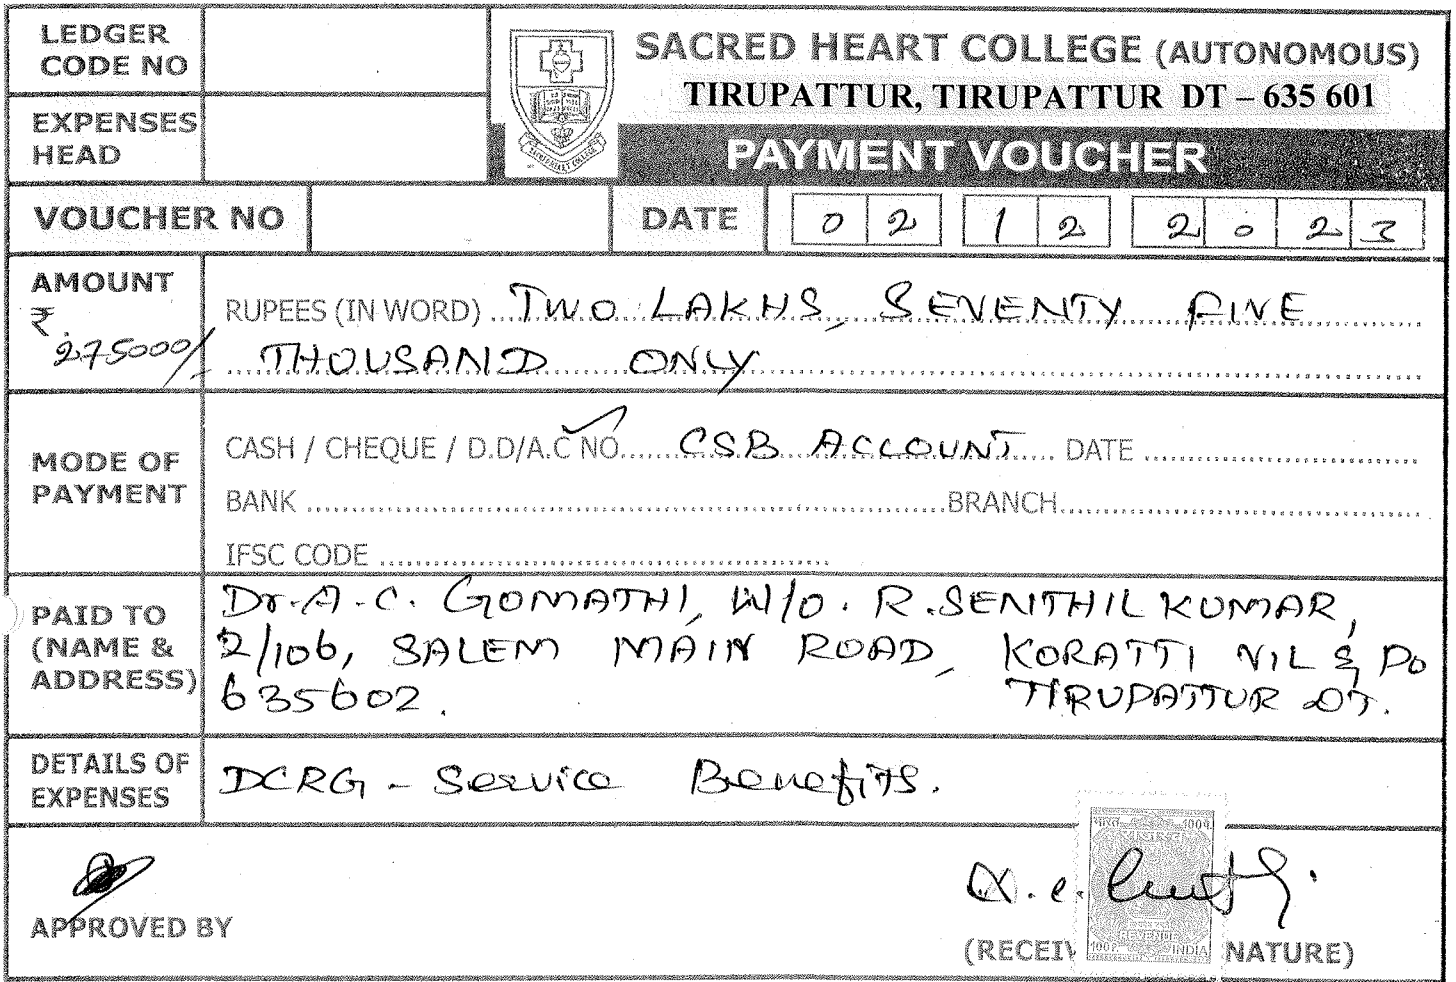 LEDGER
CODE NO
SACRED HEART COLLEGE (AUTONOMOUS)
TIRUPATTUR, TIRUPATTUR DT – 635 601
EXPENSES
HEAD
PAYMENT VOUCHER
VOUCHER NO DATE 02 12 2023
AMOUNT
₹.
275000/-
RUPEES (IN WORD) TWO LAKHS, SEVENTY FIVE
THOUSAND ONLY
MODE OF
PAYMENT
CASH / CHEQUE / D.D/A.C NO CSB ACCOUNT DATE
BANK BRANCH
IFSC CODE
PAID TO
(NAME &
ADDRESS)
Dr. A.C. GOMATHI, W/O. R. SENTHIL KUMAR,
2/106, SALEM MAIN ROAD, KORATTI VIL & PO
635602. TIRUPATTUR DT.
DETAILS OF
EXPENSES
DCRG - Service Benefits.
APPROVED BY
REVENUE
INDIA
(RECEI NATURE)